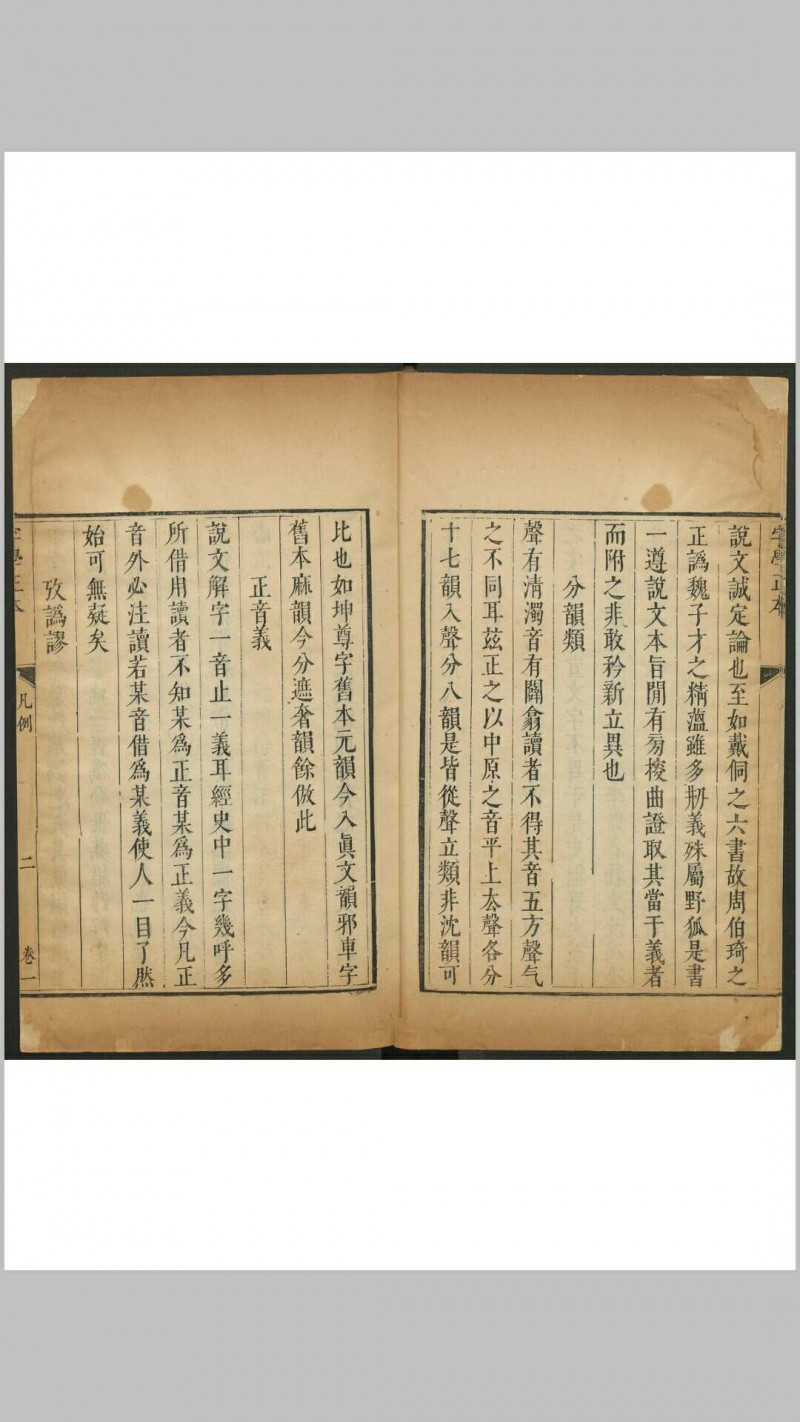 字學正本
說文誠定論也至如戴侗之六書故周伯琦之
正譌魏子才之精蘊雖多刱義殊屬野狐是書
一遵說文本旨閒有旁援曲證取其當于義者
而附之非敢矜新立異也
分韻類
聲有清濁音有闢翕讀者不得其音五方聲气
之不同耳兹正之以中原之音平上去聲各分
十七韻入聲分八韻是皆從聲立類非沈韻可
比也如坤尊字舊本元韻今入眞文韻邪車字
舊本麻韻今分遮奢韻餘倣此
正音義
說文解字一音止一義耳經史中一字幾呼多
所借用讀者不知某爲正音某爲正義今凡正
音外必注讀若某音借爲某義使人一目了然
始可無疑矣
攷譌謬
字學正本 凡例 二 卷一